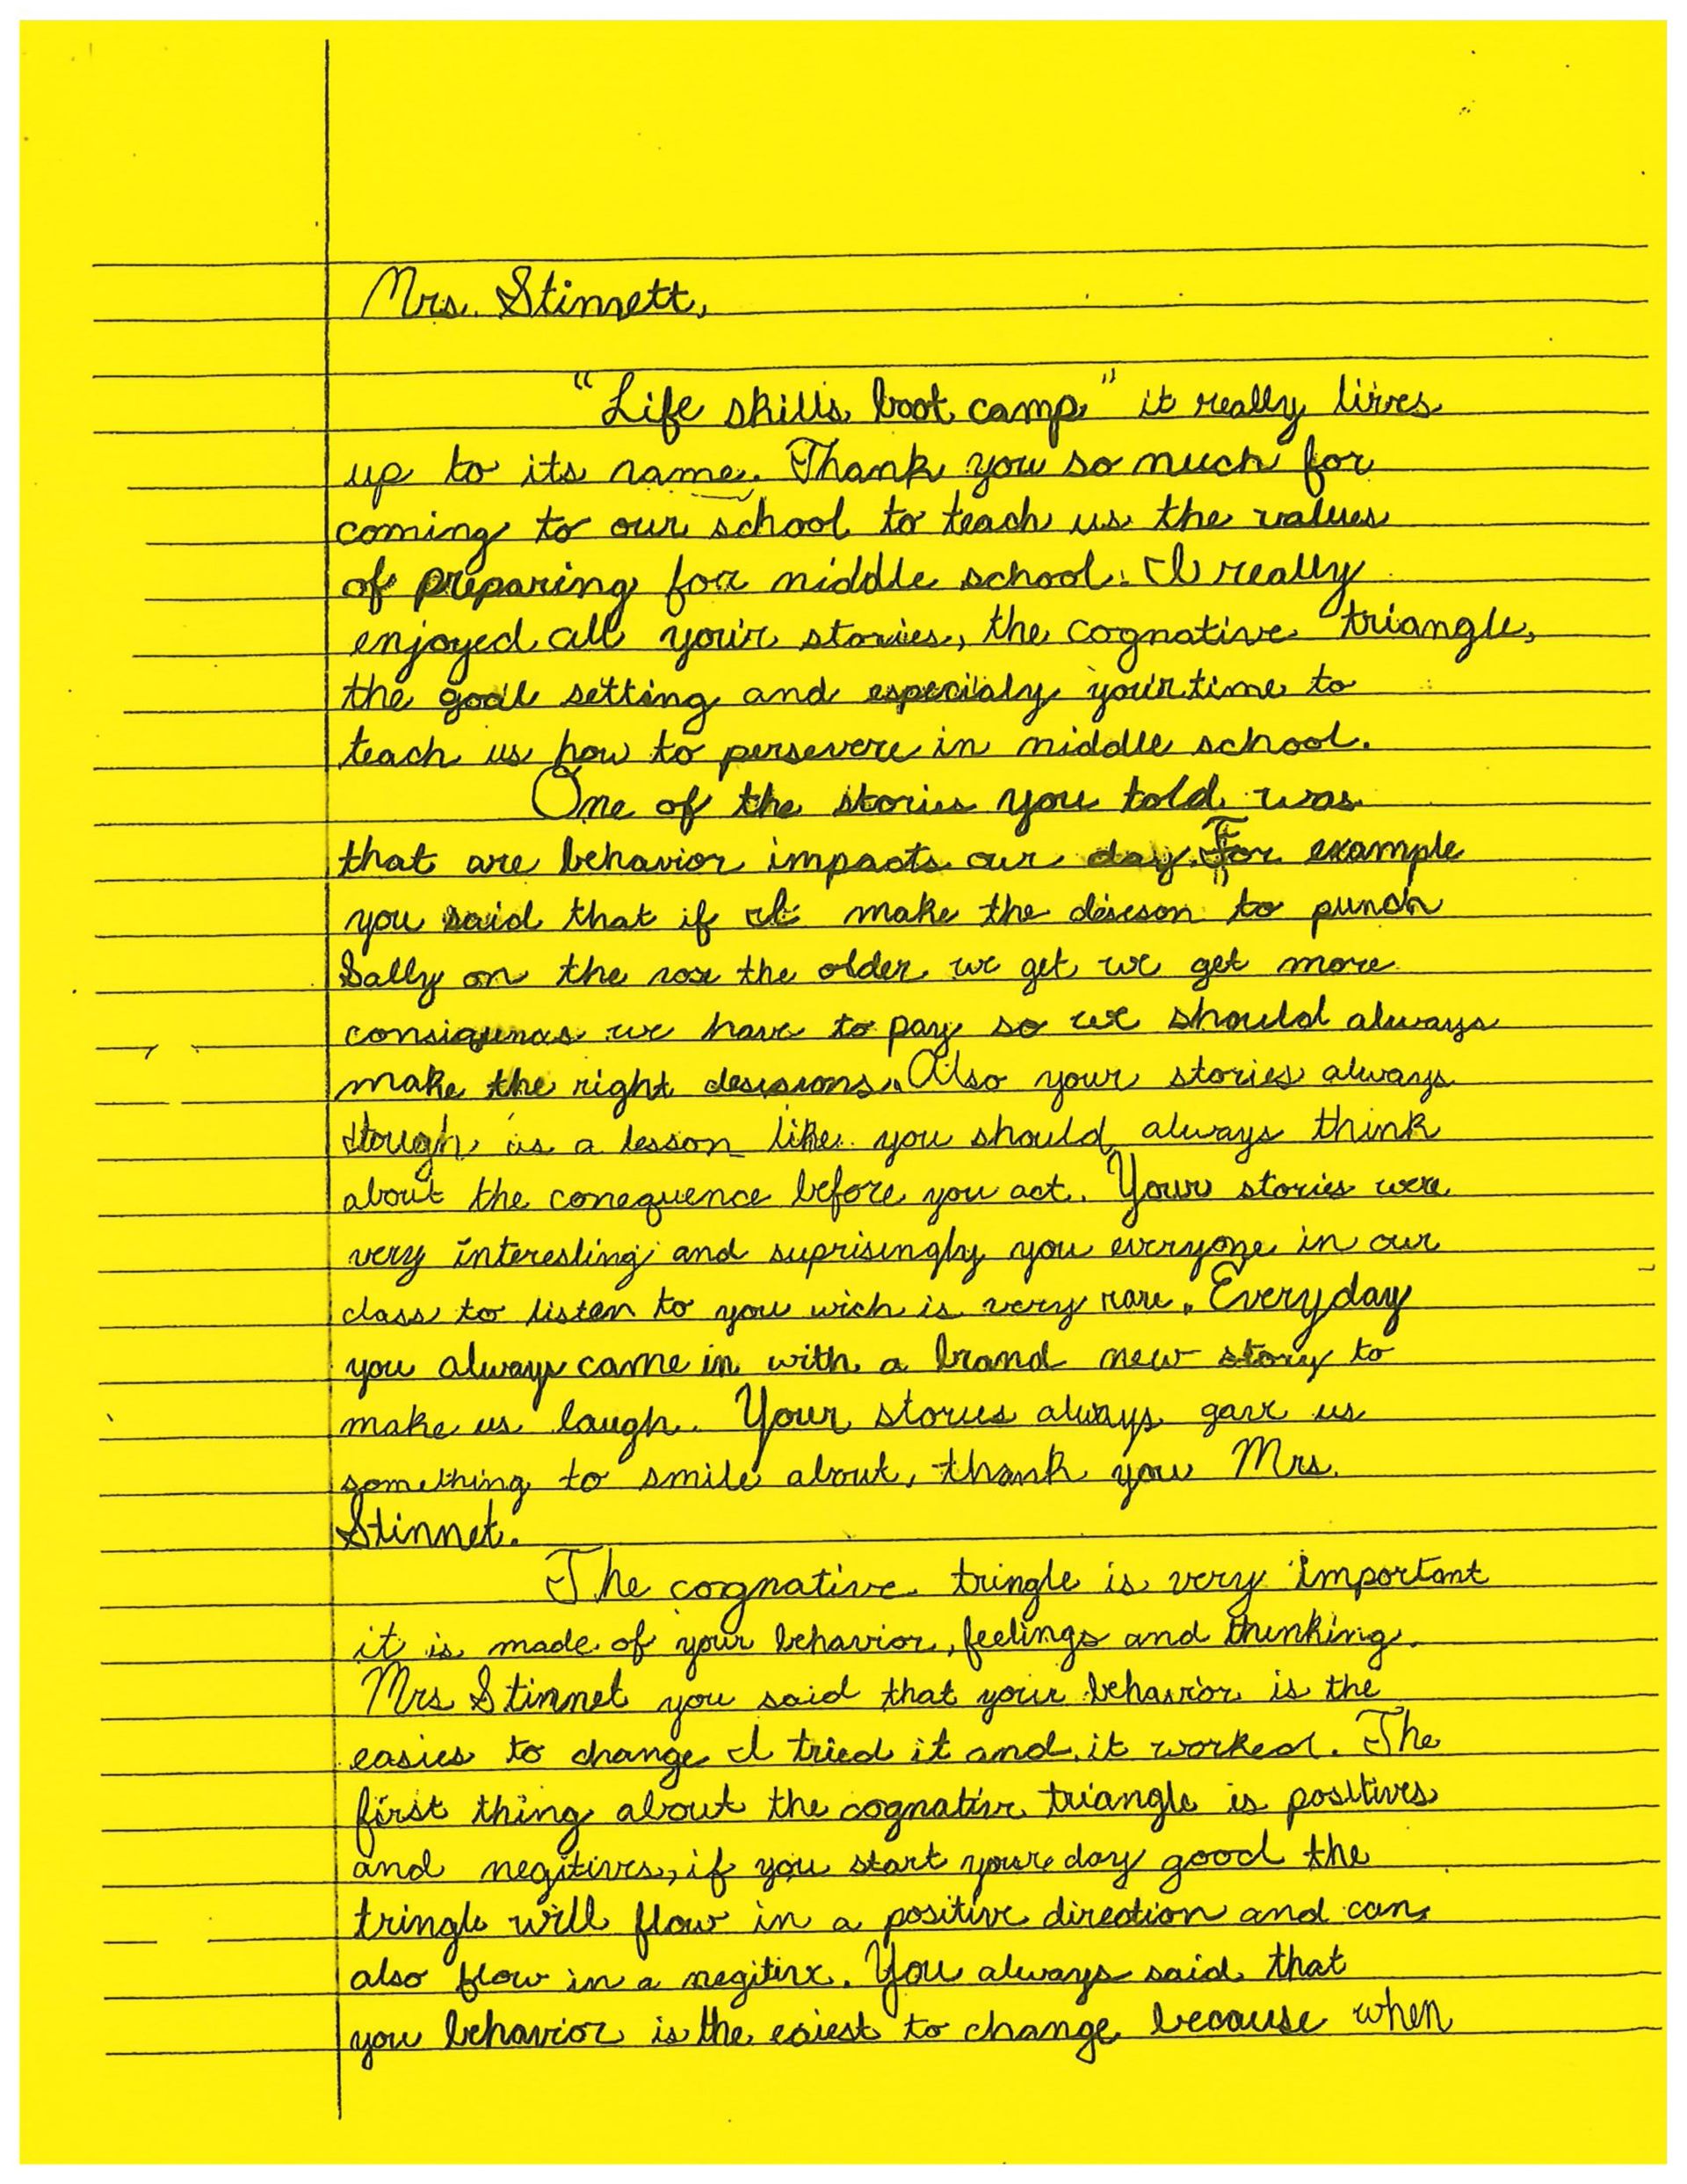 Mrs. Stinnett,
"Life skills boot camp" it really lives
up to its name. Thank you so much for
coming to our school to teach us the values
of preparing for middle school. I really
enjoyed all your stories, the cognative triangle,
the goal setting and especialy your time to
teach us how to persevere in middle school.
One of the stories you told was
that are behavior impacts our day. For example
you said that if I make the deiscson to punch
Sally on the nose the older we get we get more
consiquences we have to pay so we should always
make the right descisions. Also your stories always
tough us a lesson like you should always think
about the conequence before you act. Your stories were
very interesting and suprisingly you everyone in our
class to listen to you wich is very rare. Everyday
you always came in with a brand new story to
make us laugh. Your stories always gave us
something to smile about, thank you Mrs.
Stinnet.
The cognative tringle is very important
it is made of your behavior, feelings and thinking.
Mrs Stinnet you said that your behavior is the
easies to change I tried it and it worked. The
first thing about the cognative triangle is positives
and negitives, if you start your day good the
tringle will flow in a positive direction and can
also flow in a negitive. You always said that
you behavior is the eaiest to change because when